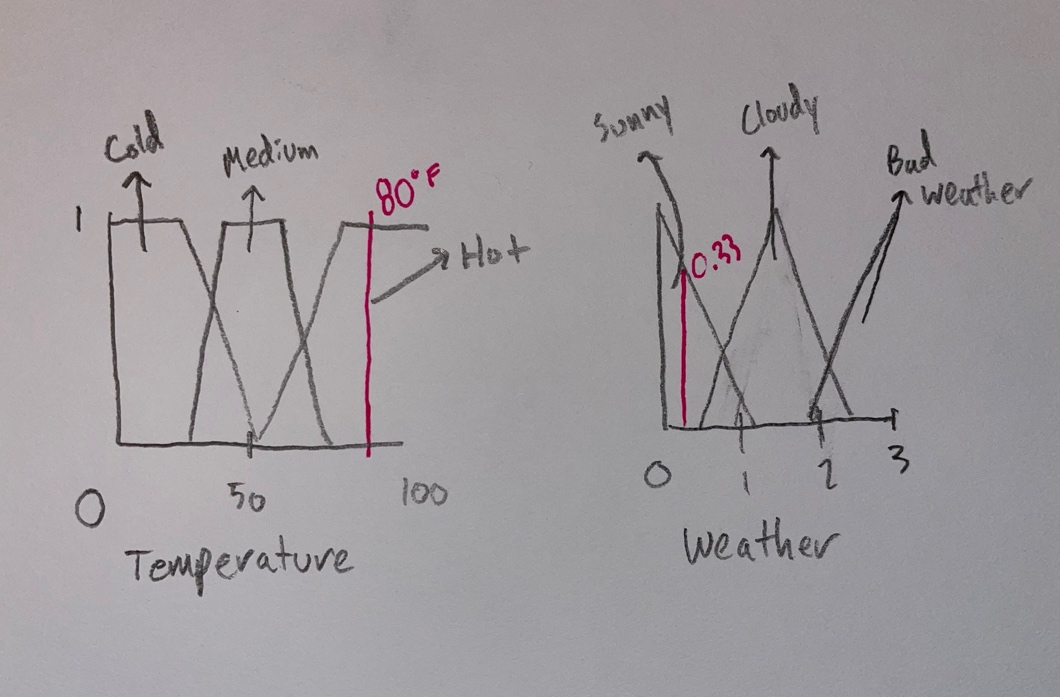 Cold
Medium
1
80°F
Hot
0
50
100
Temperature
Sunny
Cloudy
Bad
weather
0.33
0
1
2
3
Weather